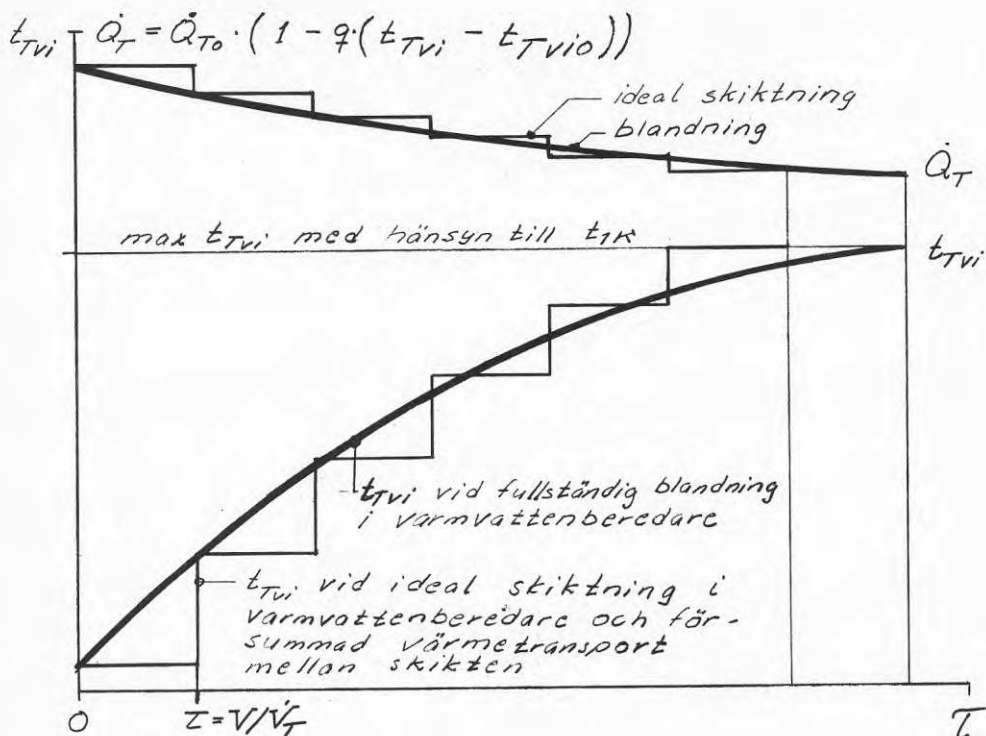 t_Tvi Q̇_T = Q̇_To · (1 - q·(t_Tvi - t_Tvio))
ideal skiktning
blandning
Q̇_T
max t_Tvi med hänsyn till t_1K
t_Tvi
t_Tvi vid fullständig blandning
i varmvattenberedare
t_Tvi vid ideal skiktning i
varmvattenberedare och för-
summad värmetransport
mellan skikten
0 τ = V/V̇_T τ